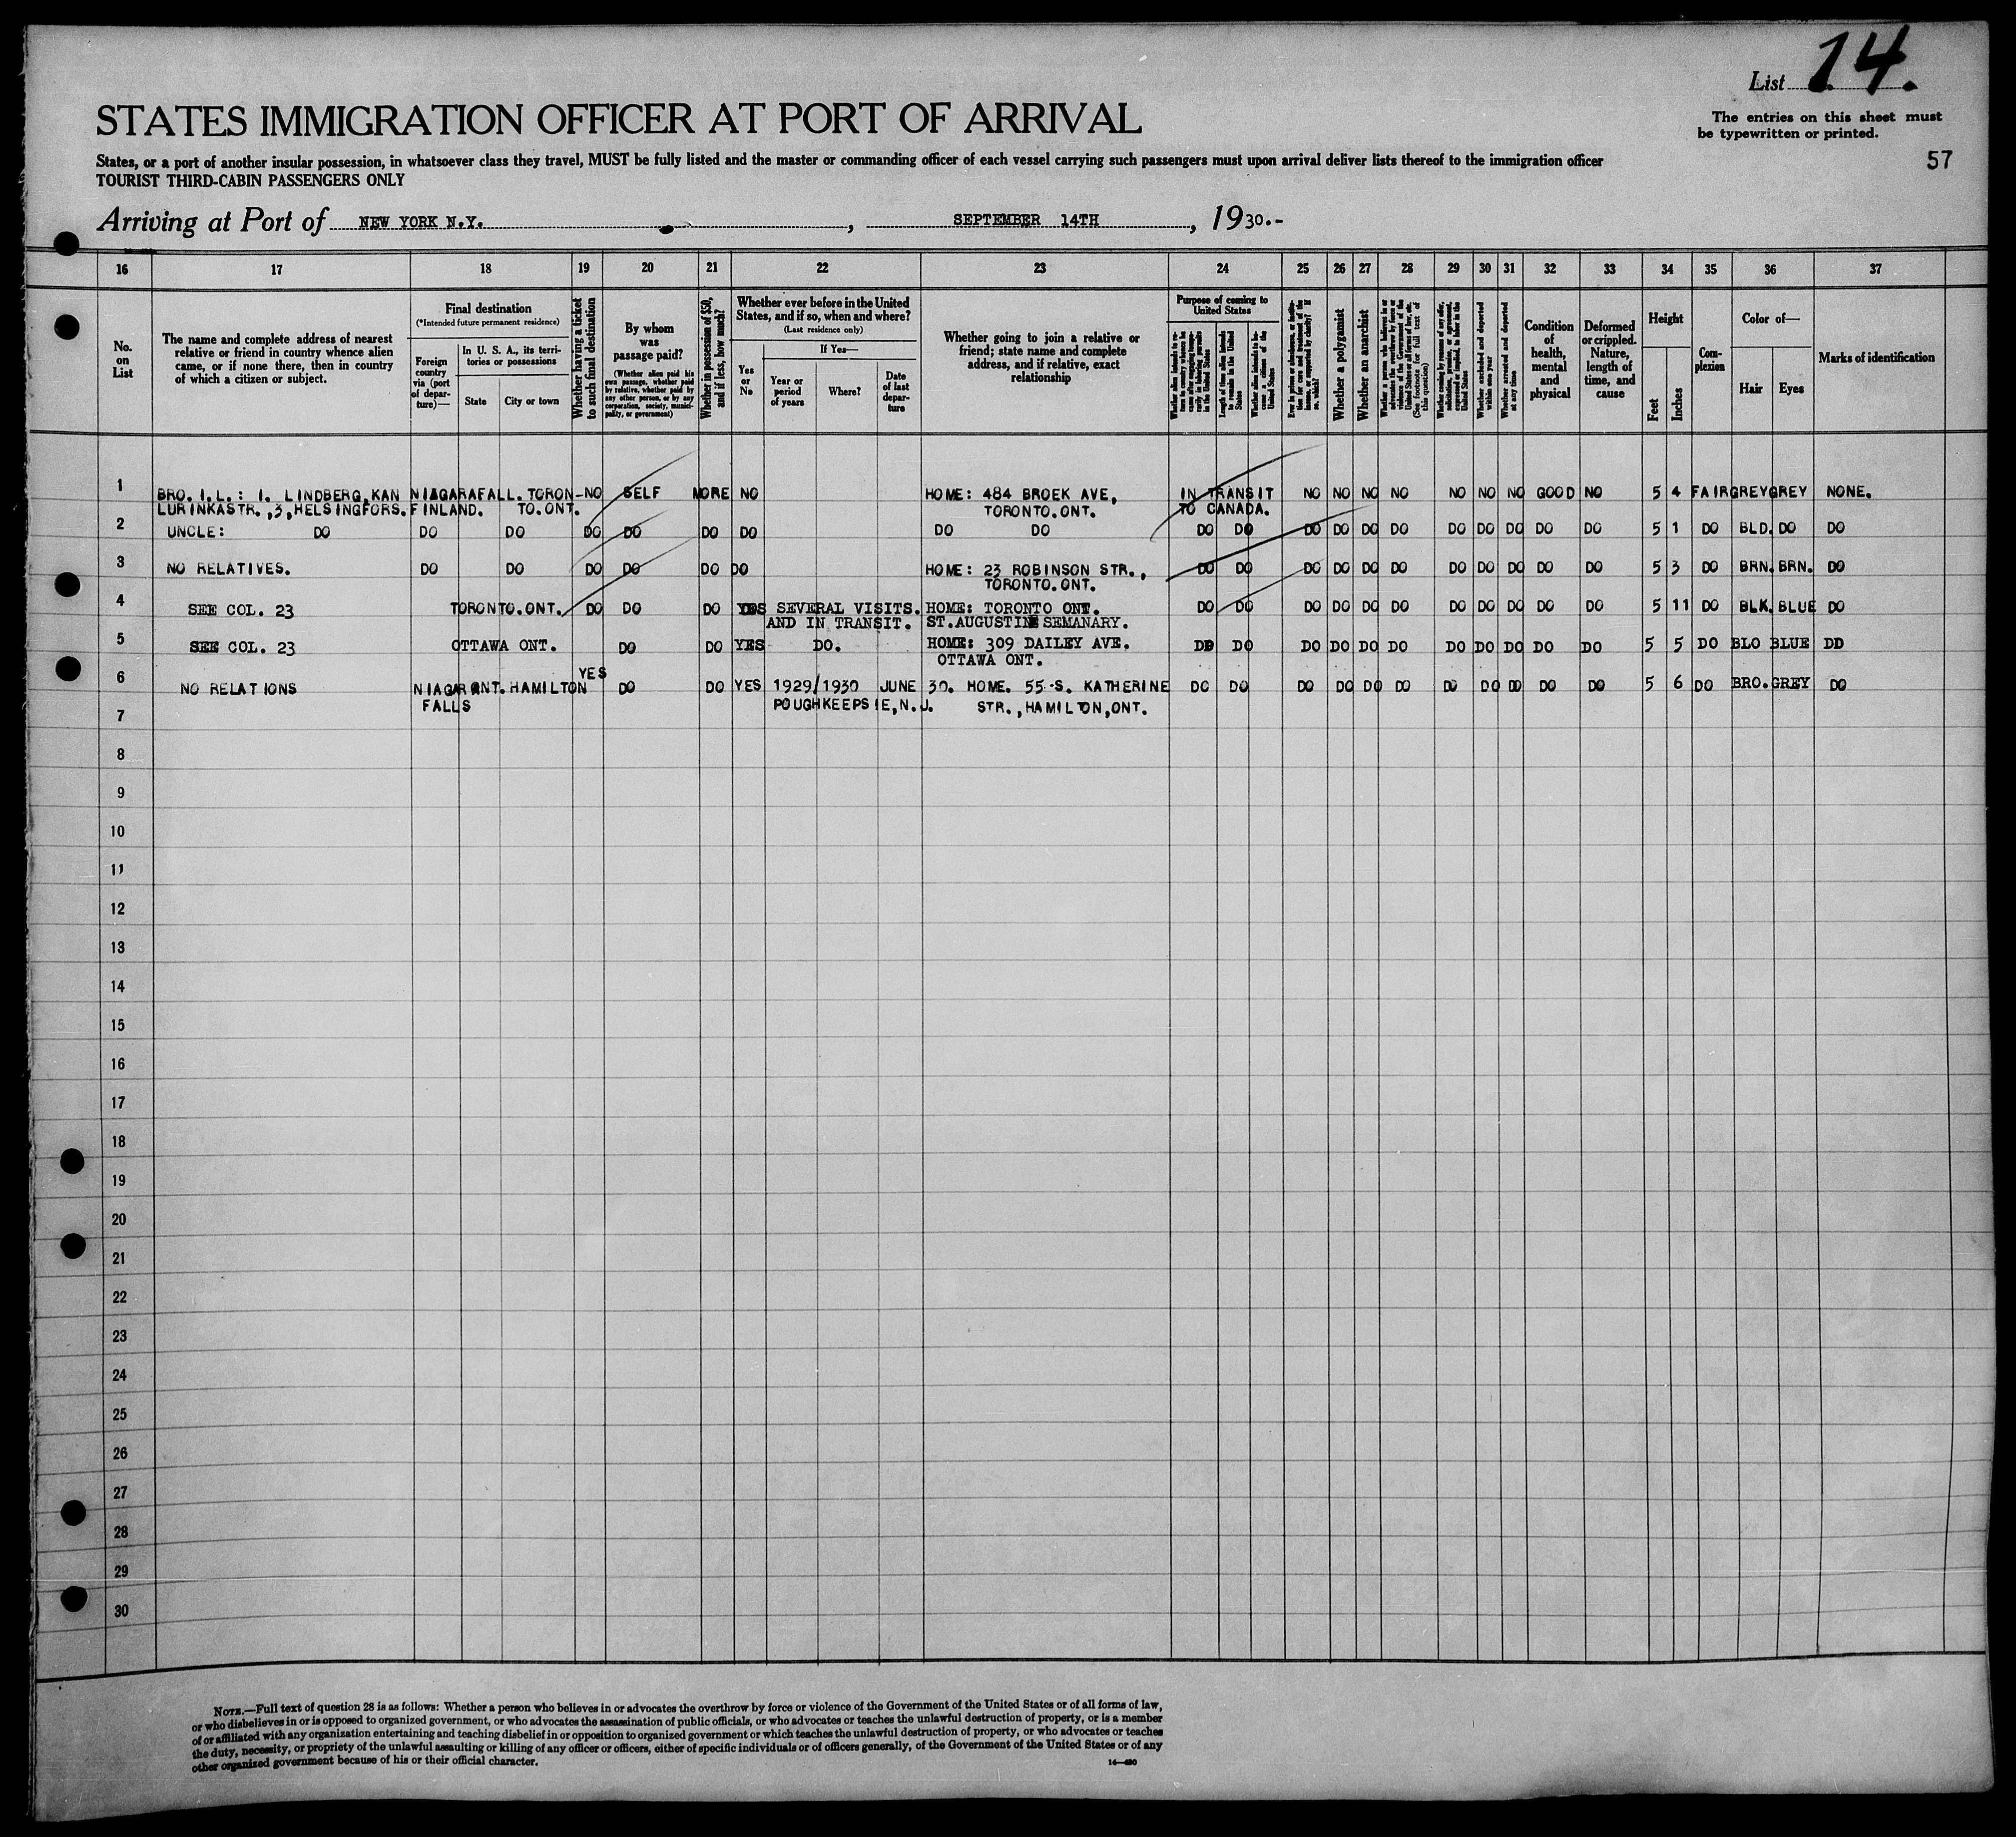 List 14.
STATES IMMIGRATION OFFICER AT PORT OF ARRIVAL
The entries on this sheet must
be typewritten or printed.
States, or a port of another insular possession, in whatsoever class they travel, MUST be fully listed and the master or commanding officer of each vessel carrying such passengers must upon arrival deliver lists thereof to the immigration officer
TOURIST THIRD-CABIN PASSENGERS ONLY
57
Arriving at Port of NEW YORK N.Y. , SEPTEMBER 14TH , 1930.-
16 17 18 19 20 21 22 23 24 25 26 27 28 29 30 31 32 33 34 35 36 37
No.
on
List
The name and complete address of nearest
relative or friend in country whence alien
came, or if none there, then in country
of which a citizen or subject.
Final destination
(*Intended future permanent residence)
Foreign
country
via (port
of depar-
ture)—
In U. S. A., its terri-
tories or possessions
State
City or town
Whether having a ticket
to such final destination
By whom
was
passage paid?
(Whether alien paid his
own passage, whether paid
by relative, whether paid by
any other person, or by any
corporation, society, munici-
pality, or government)
Whether in possession of $50,
and if less, how much?
Whether ever before in the United
States, and if so, when and where?
(Last residence only)
Yes
or
No
If Yes—
Year or
period
of years
Where?
Date
of last
depar-
ture
Whether going to join a relative or
friend; state name and complete
address, and if relative, exact
relationship
Purpose of coming to
United States
Whether alien intends to re-
turn to country whence he
came after engaging tempo-
rarily in laboring pursuits
in the United States
Length of time alien intends
to remain in the United
States
Whether alien intends to be-
come a citizen of the
United States
Ever in prison or almshouse, or institu-
tion for care and treatment of the
insane, or supported by charity? If
so, which?
Whether a polygamist
Whether an anarchist
Whether a person who believes in or
advocates the overthrow by force or
violence of the Government of the
United States or all forms of law, etc.
(See footnote for full text of
this question)
Whether coming by reason of any offer,
solicitation, promise, or agreement,
expressed or implied, to labor in the
United States
Whether excluded and deported
within one year
Whether arrested and deported
at any time
Condition
of
health,
mental
and
physical
Deformed
or crippled.
Nature,
length of
time, and
cause
Height
Feet
Inches
Com-
plexion
Color of—
Hair
Eyes
Marks of identification
1 BRO. I.L.: I. LINDBERG,KAN NIAGARAFALL. TORON- NO SELF MORE NO HOME: 484 BROEK AVE, IN TRANSIT NO NO NO NO NO NO NO GOOD NO 5 4 FAIR GREY GREY NONE.
LURINKASTR.,3,HELSINGFORS.FINLAND. TO.ONT. TORONTO.ONT. TO CANADA.
2 UNCLE: DO DO DO DO DO DO DO DO DO DO DO DO DO DO DO DO DO DO DO DO 5 1 DO BLD. DO DO
3 NO RELATIVES. DO DO DO DO DO DO HOME: 23 ROBINSON STR., DO DO DO DO DO DO DO DO DO DO DO 5 3 DO BRN. BRN. DO
TORONTO.ONT.
4 SEE COL. 23 TORONTO.ONT. DO DO DO YES SEVERAL VISITS. HOME: TORONTO ONT. DO DO DO DO DO DO DO DO DO DO DO 5 11 DO BLK. BLUE DO
AND IN TRANSIT. ST.AUGUSTINE SEMANARY.
5 SEE COL. 23 OTTAWA ONT. DO DO YES DO. HOME: 309 DAILEY AVE. DO DO DO DO DO DO DO DO DO DO DO 5 5 DO BLO BLUE DD
OTTAWA ONT.
YES
6 NO RELATIONS NIAGAR ONT. HAMILTON DO DO YES 1929/1930 JUNE 30. HOME. 55-S. KATHERINE DO DO DO DO DO DO DO DO DO DO DO 5 6 DO BRO. GREY DO
FALLS POUGHKEEPSIE,N.J. STR.,HAMILTON,ONT.
7
8
9
10
11
12
13
14
15
16
17
18
19
20
21
22
23
24
25
26
27
28
29
30
NOTE.—Full text of question 28 is as follows: Whether a person who believes in or advocates the overthrow by force or violence of the Government of the United States or of all forms of law,
or who disbelieves in or is opposed to organized government, or who advocates the assassination of public officials, or who advocates or teaches the unlawful destruction of property, or is a member
of or affiliated with any organization entertaining and teaching disbelief in or opposition to organized government or which teaches the unlawful destruction of property, or who advocates or teaches
the duty, necessity, or propriety of the unlawful assaulting or killing of any officer or officers, either of specific individuals or of officers generally, of the Government of the United States or of any
other organized government because of his or their official character.